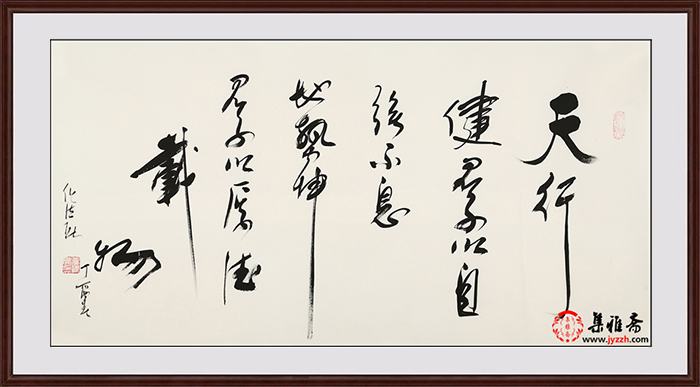 天行
健君子以自
强不息
地勢坤
君子以厚德
載
物
集雅斋
www.jyzzh.com